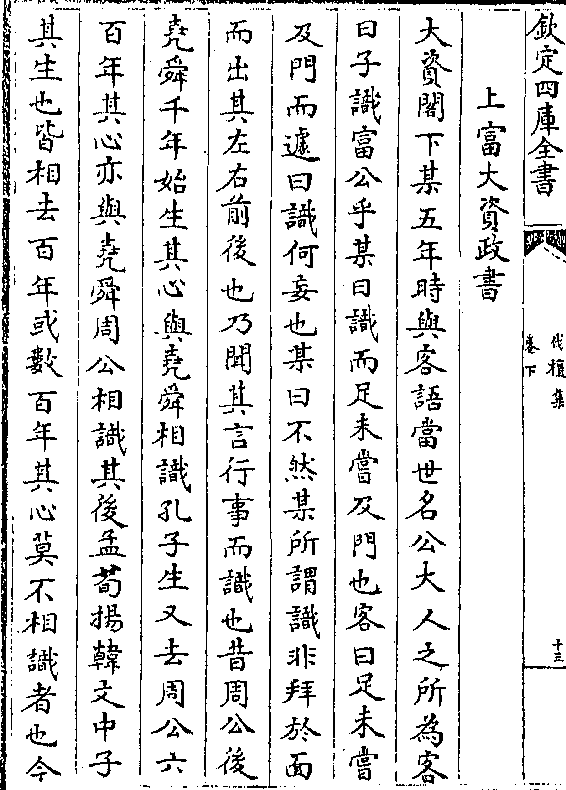 欽定四庫全書
伐檀集
卷下
十三
上富大資政書
大資閣下某五年時與客語當世名公大人之所為客
曰子識富公乎某曰識而足未嘗及門也客曰足未嘗
及門而遽曰識何妄也某曰不然某所謂識非拜於面
而出其左右前後也乃聞其言行事而識也昔周公後
堯舜千年始生其心與堯舜相識孔子生又去周公六
百年其心亦與堯舜周公相識其後孟荀揚韓文中子
其生也皆相去百年或數百年其心莫不相識者也今